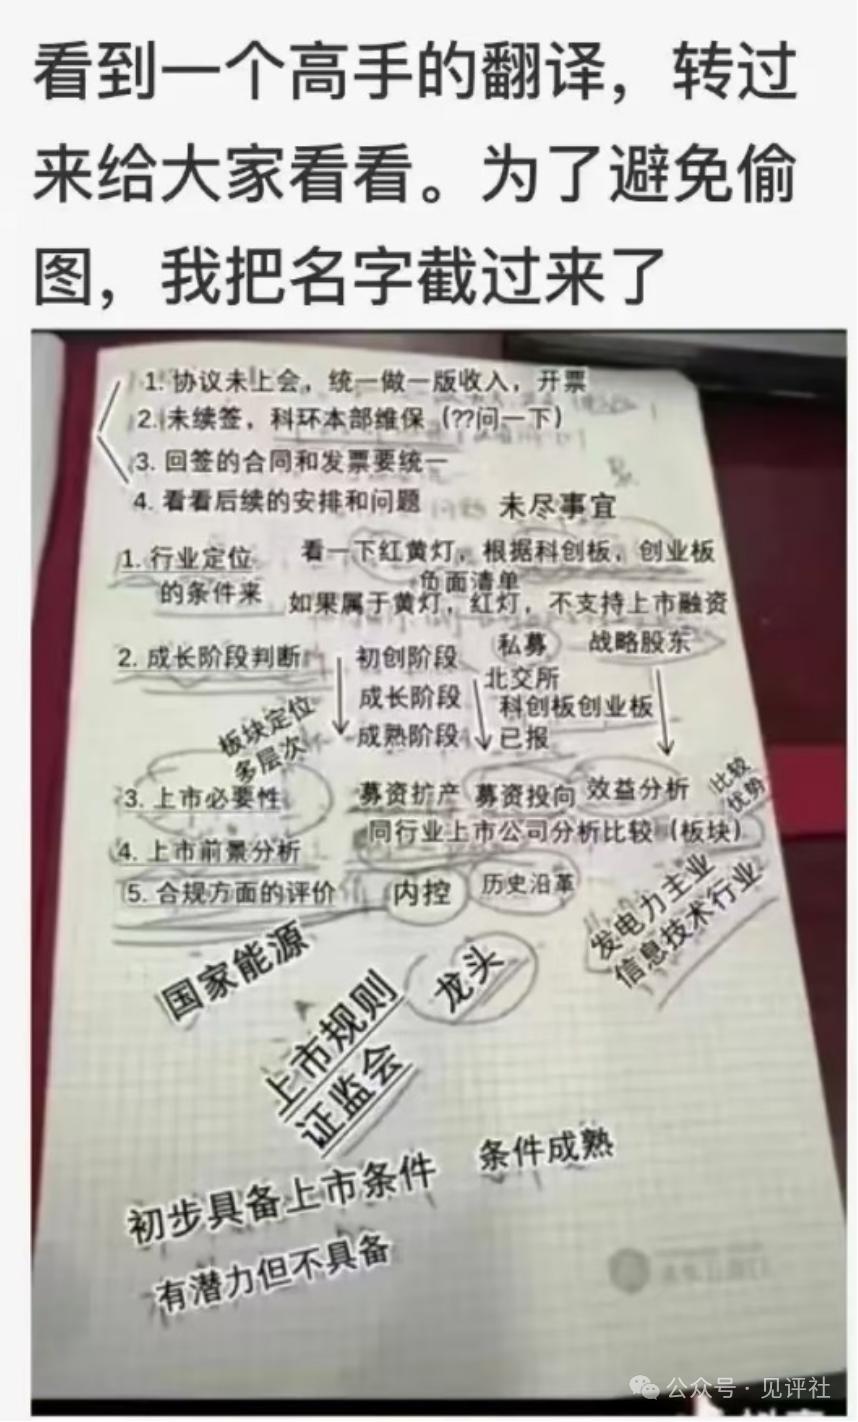 看到一个高手的翻译，转过
来给大家看看。为了避免偷
图，我把名字截过来了
1. 协议未上会，统一做一版收入，开票
2. 未续签，科环本部维保（??问一下）
3. 回签的合同和发票要统一
4. 看看后续的安排和问题
未尽事宜
1. 行业定位
的条件来
看一下红黄灯，根据科创板，创业板
负面清单
如果属于黄灯，红灯，不支持上市融资
2. 成长阶段判断
初创阶段
私募
战略股东
成长阶段
北交所
科创板创业板
成熟阶段
已报
板块定位
多层次
3. 上市必要性
募资扩产
募资投向
效益分析
比较
优势
同行业上市公司分析比较（板块）
4. 上市前景分析
5. 合规方面的评价
内控
历史沿革
发电力主业
信息技术行业
国家能源
龙头
上市规则
证监会
初步具备上市条件
条件成熟
有潜力但不具备
公众号·见评社